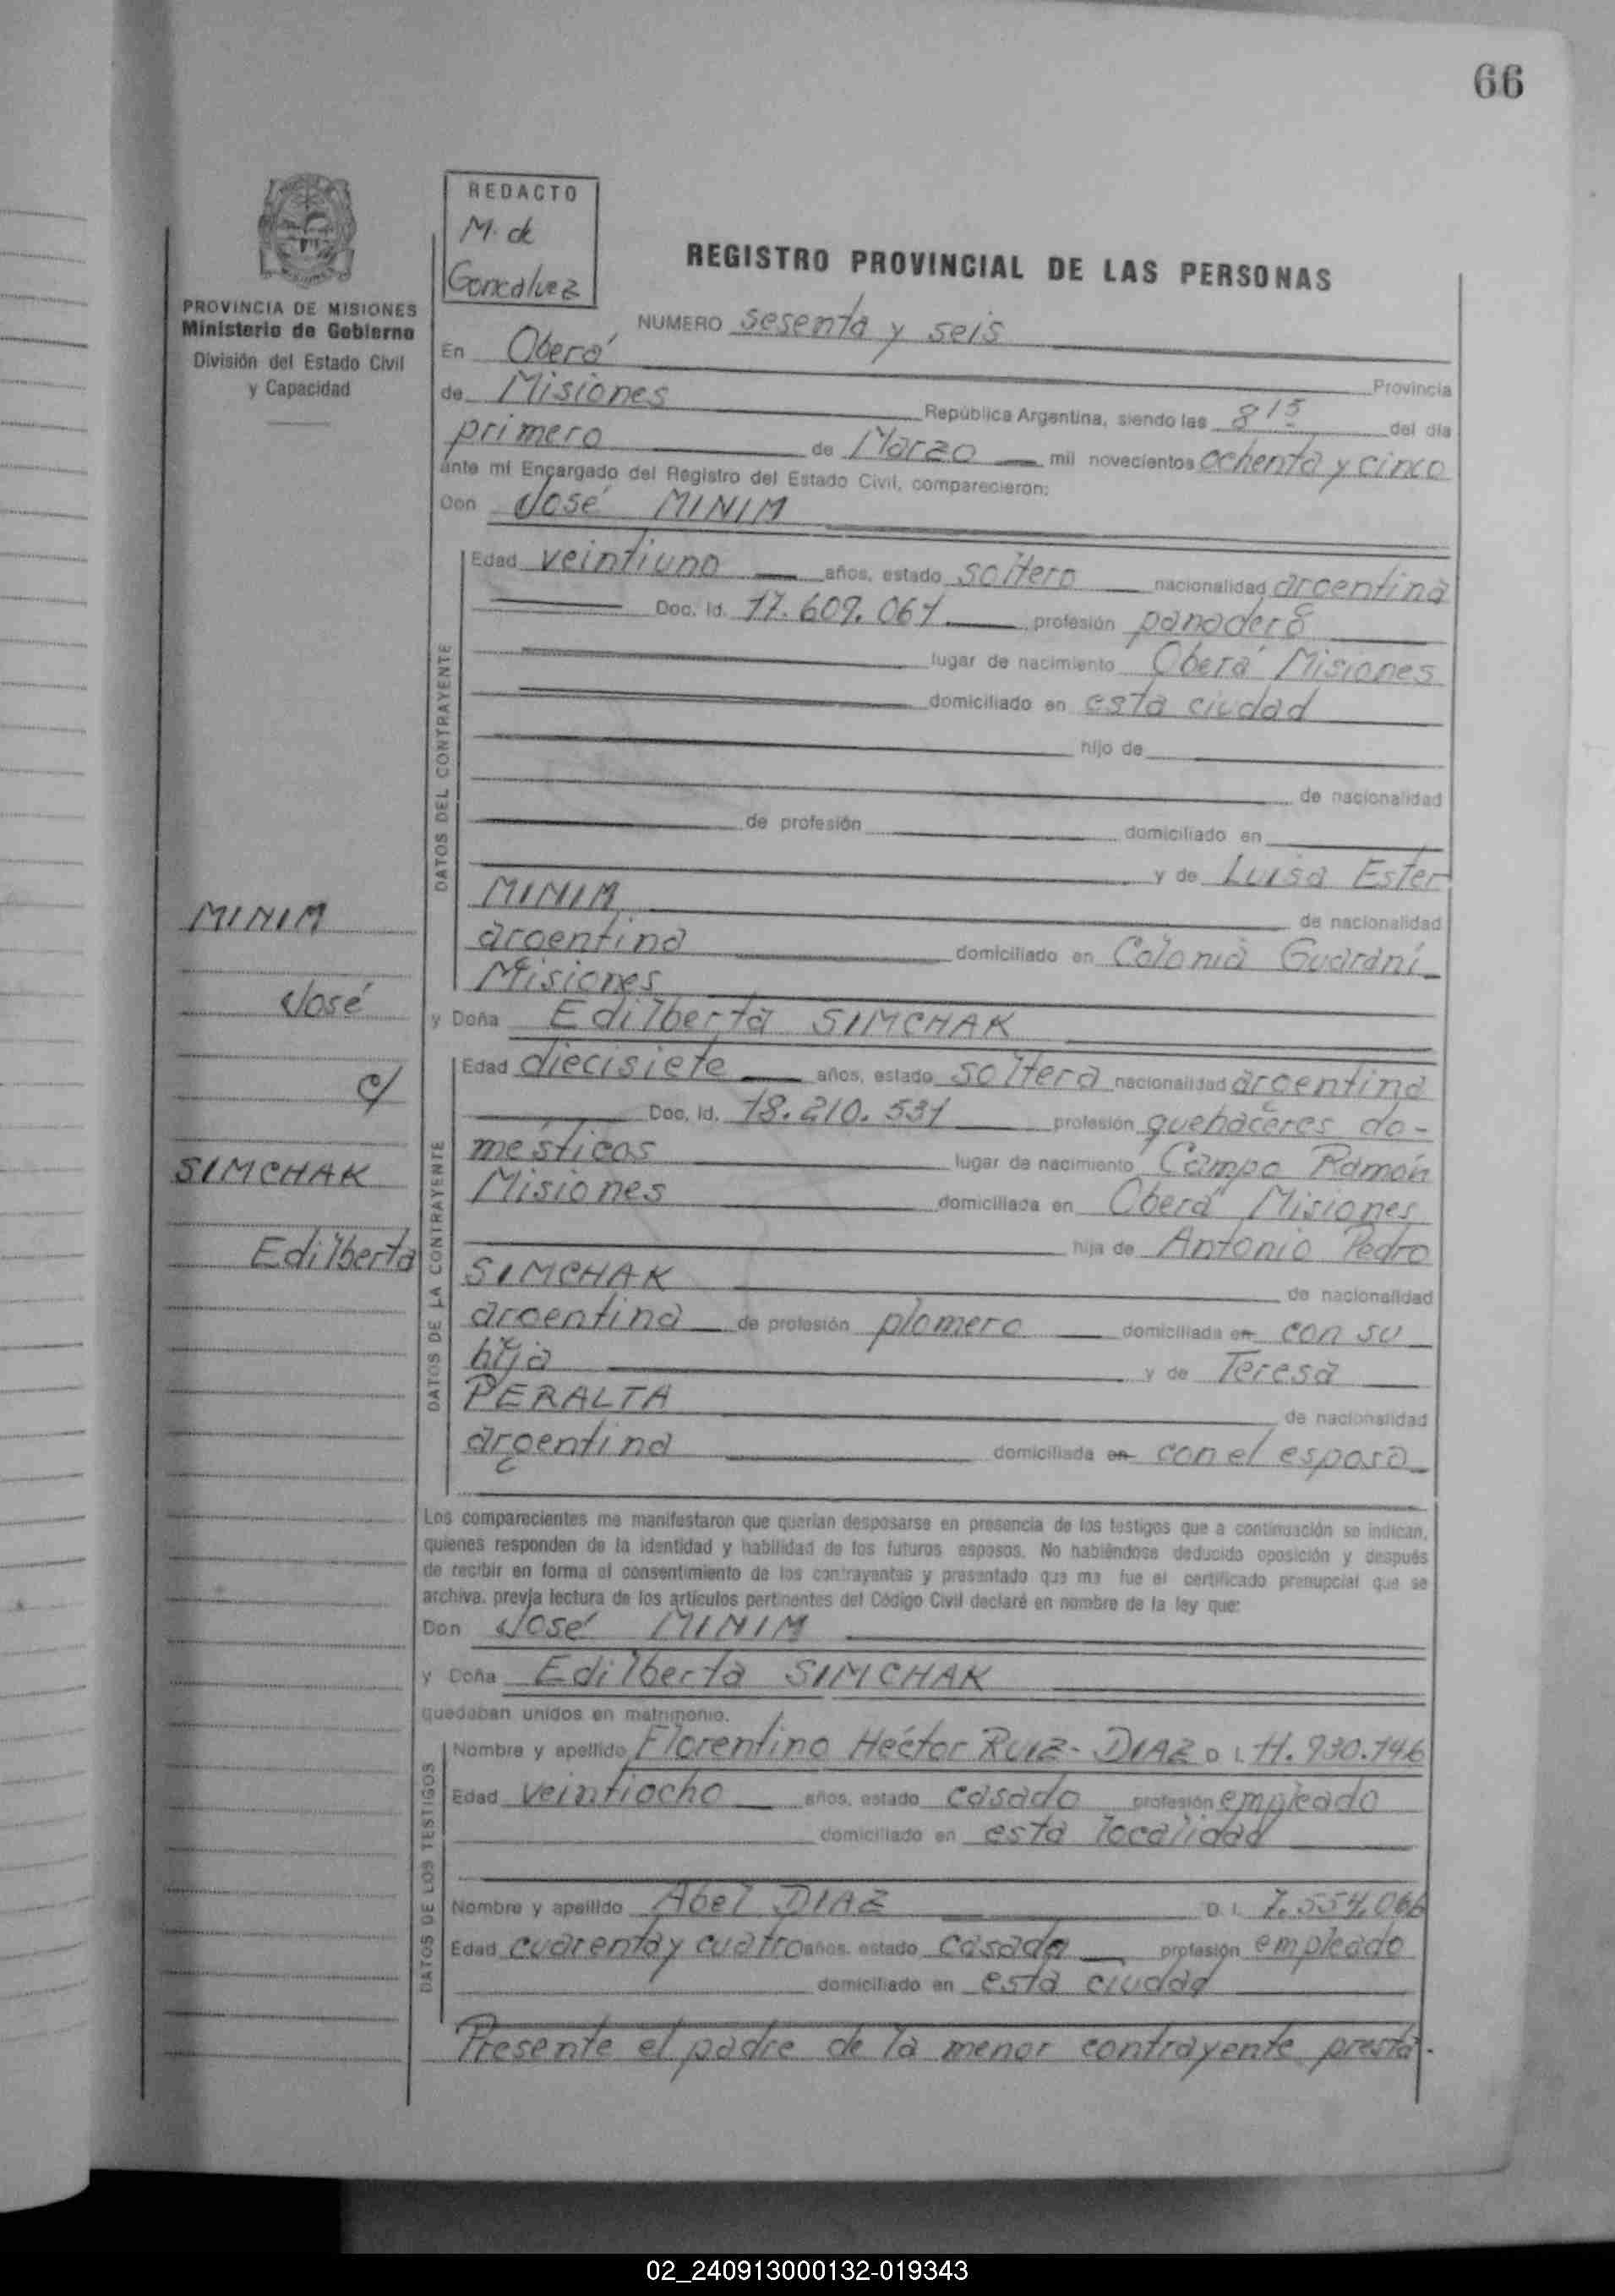 66
REDACTO
M. de
Goncalvez
PROVINCIA DE MISIONES
Ministerio de Gobierno
División del Estado Civil
y Capacidad
REGISTRO PROVINCIAL DE LAS PERSONAS
NUMERO sesenta y seis
En Oberá Provincia
de Misiones República Argentina, siendo las 8 15 del día
primero de Marzo mil novecientos ochenta y cinco
ante mí Encargado del Registro del Estado Civil, comparecieron:
Don José MINIM
DATOS DEL CONTRAYENTE
Edad veintiuno años, estado soltero nacionalidad argentina
Doc. Id. 17.609.061 profesión panadero
lugar de nacimiento Oberá Misiones
domiciliado en esta ciudad
hijo de
de nacionalidad
de profesión domiciliado en
y de Luisa Ester
MINIM de nacionalidad
argentina domiciliado en Colonia Guaraní
Misiones
y Doña Edilberta SIMCHAK
DATOS DE LA CONTRAYENTE
Edad diecisiete años, estado soltera nacionalidad argentina
Doc. Id. 18.210.531 profesión quehaceres do-
mésticos lugar de nacimiento Campo Ramón
Misiones domiciliada en Oberá Misiones
hija de Antonio Pedro
SIMCHAK de nacionalidad
argentina de profesión plomero domiciliada en con su
hija y de Teresa
PERALTA de nacionalidad
argentina domiciliada en con el esposo
MINIM
José
c/
SIMCHAK
Edilberta
Los comparecientes me manifestaron que querían desposarse en presencia de los testigos que a continuación se indican,
quienes responden de la identidad y habilidad de los futuros esposos. No habiéndose deducido oposición y después
de recibir en forma el consentimiento de los contrayentes y presentado que me fue el certificado prenupcial que se
archiva, previa lectura de los artículos pertinentes del Código Civil declaré en nombre de la ley que:
Don José MINIM
y Doña Edilberta SIMCHAK
quedaban unidos en matrimonio.
DATOS DE LOS TESTIGOS
Nombre y apellido Florentino Héctor RUIZ-DIAZ D.I. 11.930.746
Edad veintiocho años, estado casado profesión empleado
domiciliado en esta localidad
Nombre y apellido Abel DIAZ D.I. 7.554.066
Edad cuarenta y cuatro años, estado casado profesión empleado
domiciliado en esta ciudad
Presente el padre de la menor contrayente presta-
02_240913000132-019343